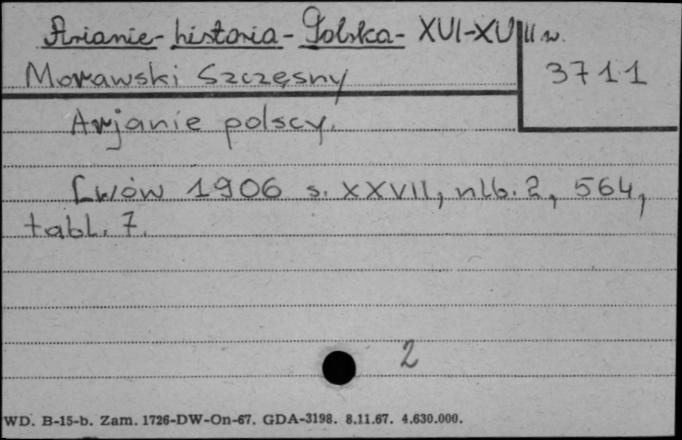 Arianie - historia - Polska - XVI-XVIII w.
Morawski Szczęsny
3711
Arjanie polscy.
Lwów 1906 s. XXVII, nlb. 2, 564,
tabl. 7.
2
WD. B-15-b. Zam. 1726-DW-On-67. GDA-3198. 8.11.67. 4.630.000.